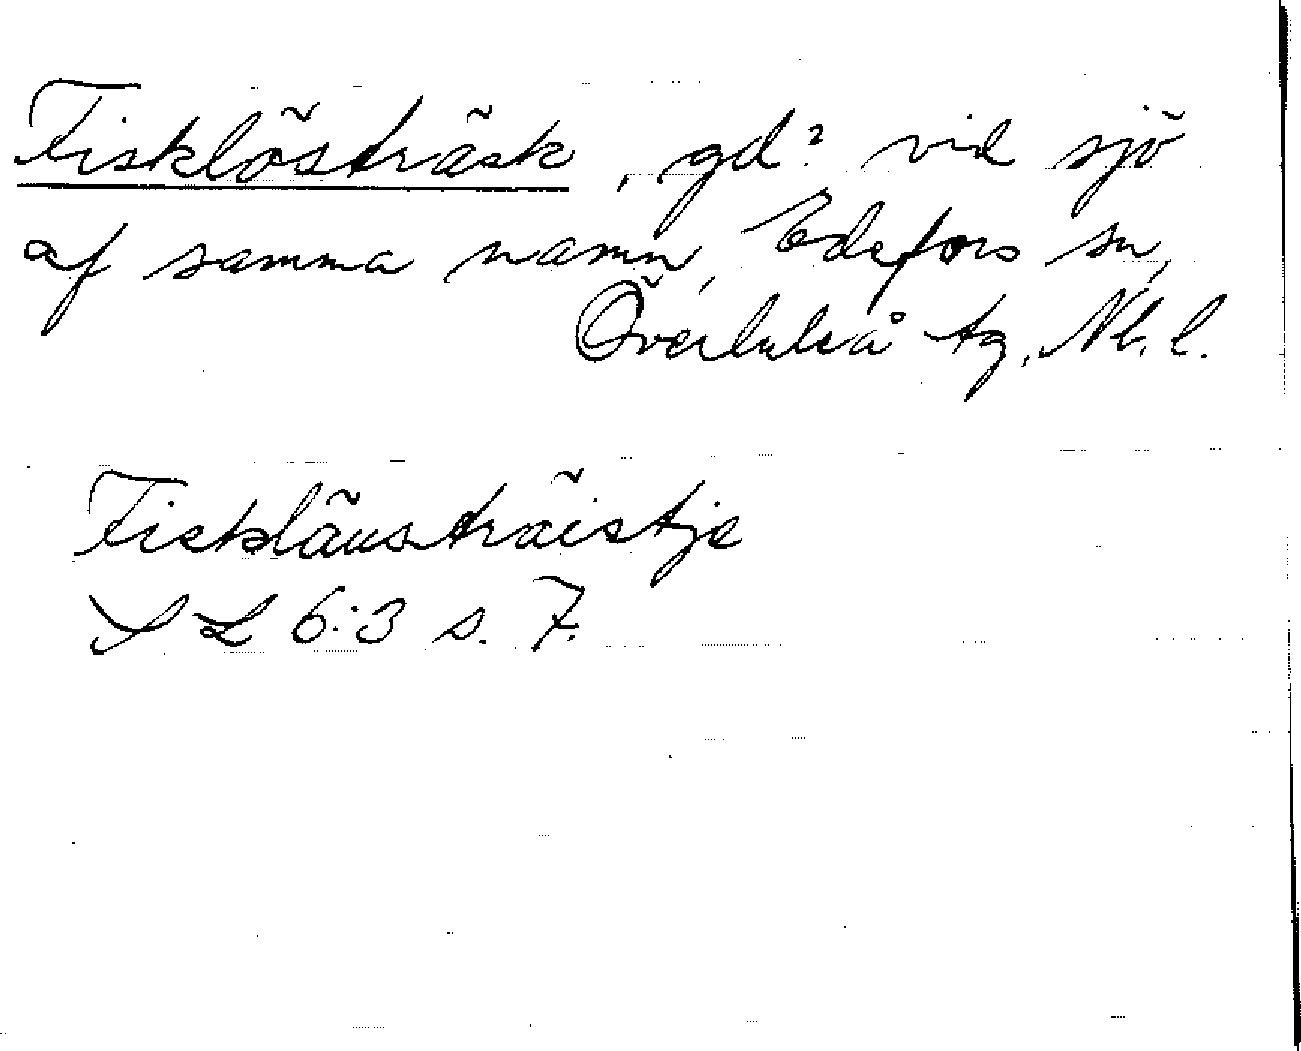 Fisklösträsk, gd? vid sjö
af samma namn, Edefors sn,
Överluleå tg, Nb. l.
Fiskläusträistje
S L 6:3 s. 7.